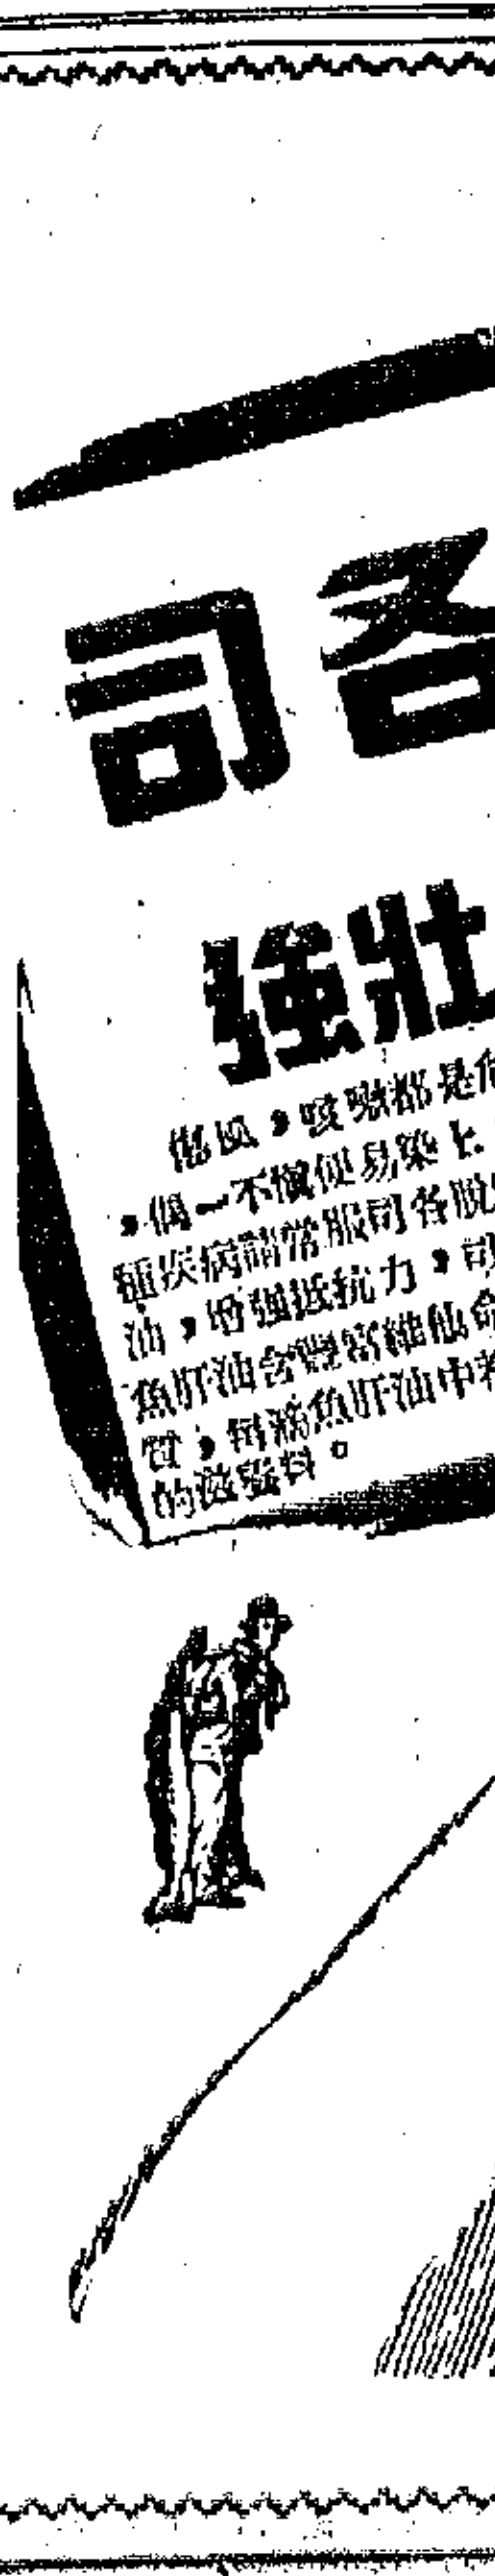 司各
強壯
傷風，咳嗽都是
，偶一不慎便易染上
種疾病請常服司各脫
油，增強抵抗力，司
魚肝油含豐富維他命
質，
魚肝油中
的滋養料。